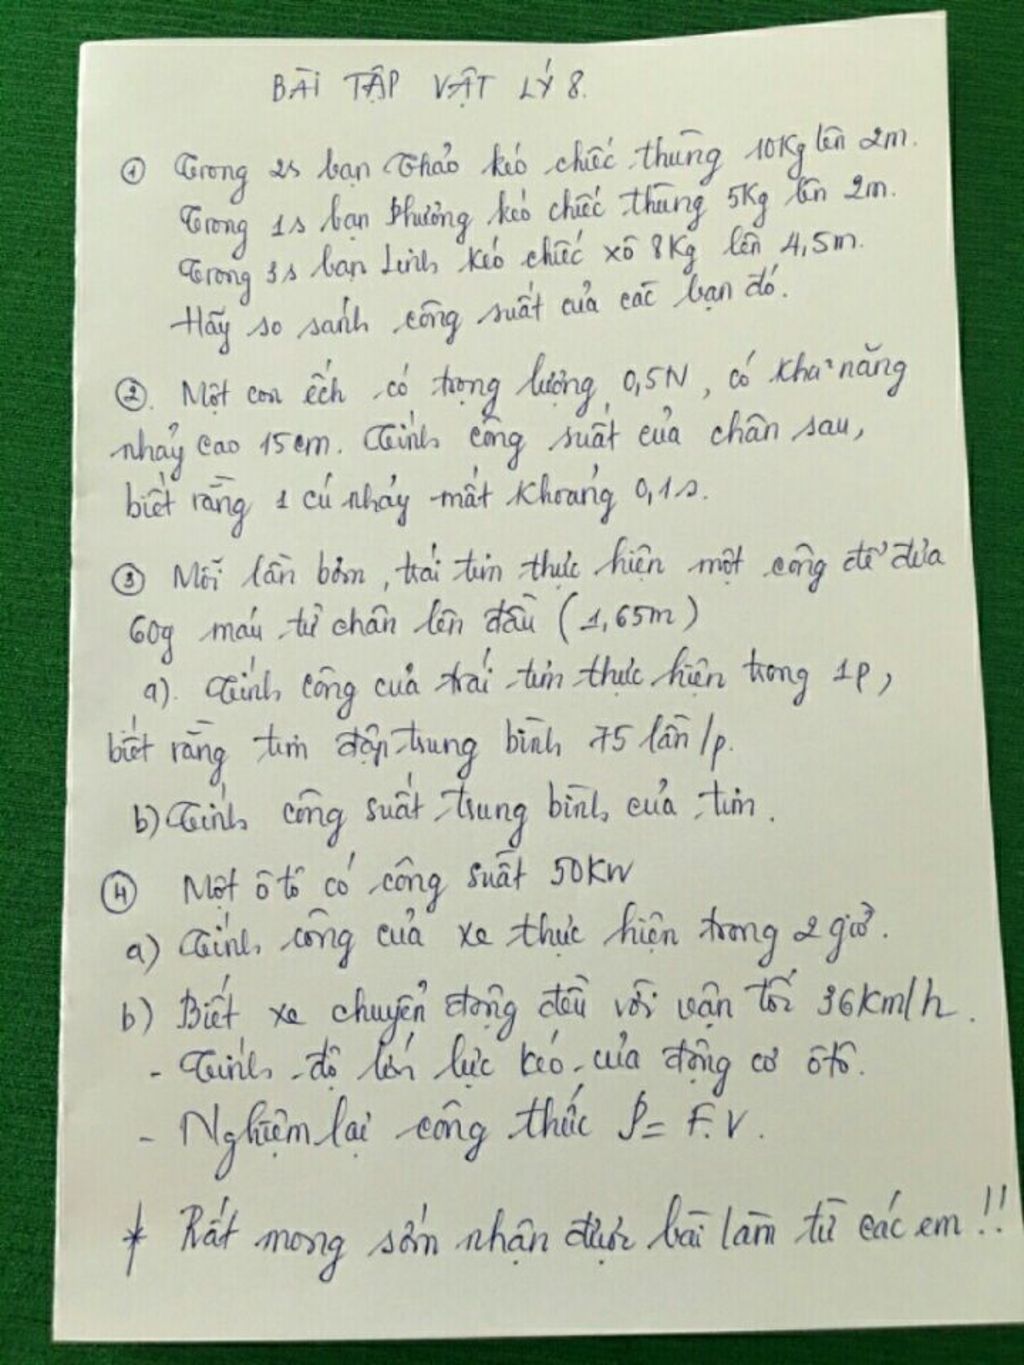 BÀI TẬP VẬT LÝ 8.
① Trong 2s bạn Thảo kéo chiếc thùng 10Kg lên 2m.
Trong 1s bạn Phưởng kéo chiếc thùng 5Kg lên 2m.
Trong 3s bạn Linh kéo chiếc xô 8Kg lên 4,5m.
Hãy so sánh công suất của các bạn đó.
②. Một con ếch có trọng lượng 0,5N, có khả năng
nhảy cao 15cm. Tính công suất của chân sau,
biết rằng 1 cú nhảy mất khoảng 0,1s.
③ Mỗi lần bơm, trái tim thực hiện một công để đưa
60g máu từ chân lên đầu (1,65m)
a). Tính công của trái tim thực hiện trong 1p,
biết rằng tim đập trung bình 75 lần/p.
b) Tính công suất trung bình của tim.
④ Một ô tô có công suất 50KW
a) Tính công của xe thực hiện trong 2 giờ.
b) Biết xe chuyển động đều với vận tốc 36Km/h.
- Tính độ lớn lực kéo của động cơ ôtô.
- Nghiệm lại công thức P = F.V.
* Rất mong sớm nhận được bài làm từ các em !!